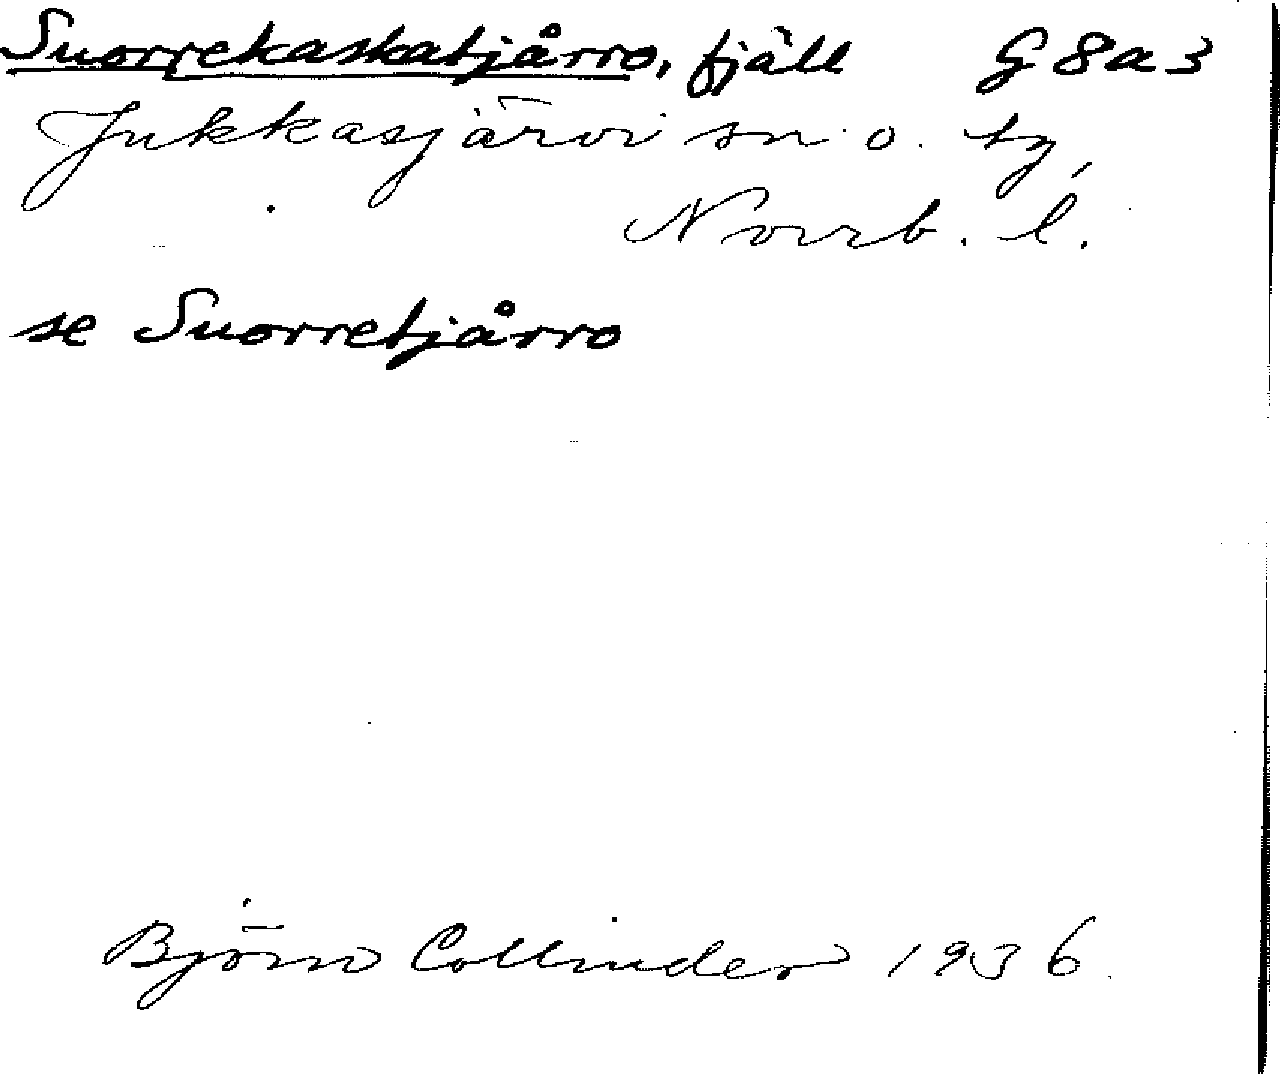 Suorrekaskatjårro, fjäll G8a3
Jukkasjärvi sn o. tg,
Norrb. l.
se Suorretjårro
Björn Collinder 1936.